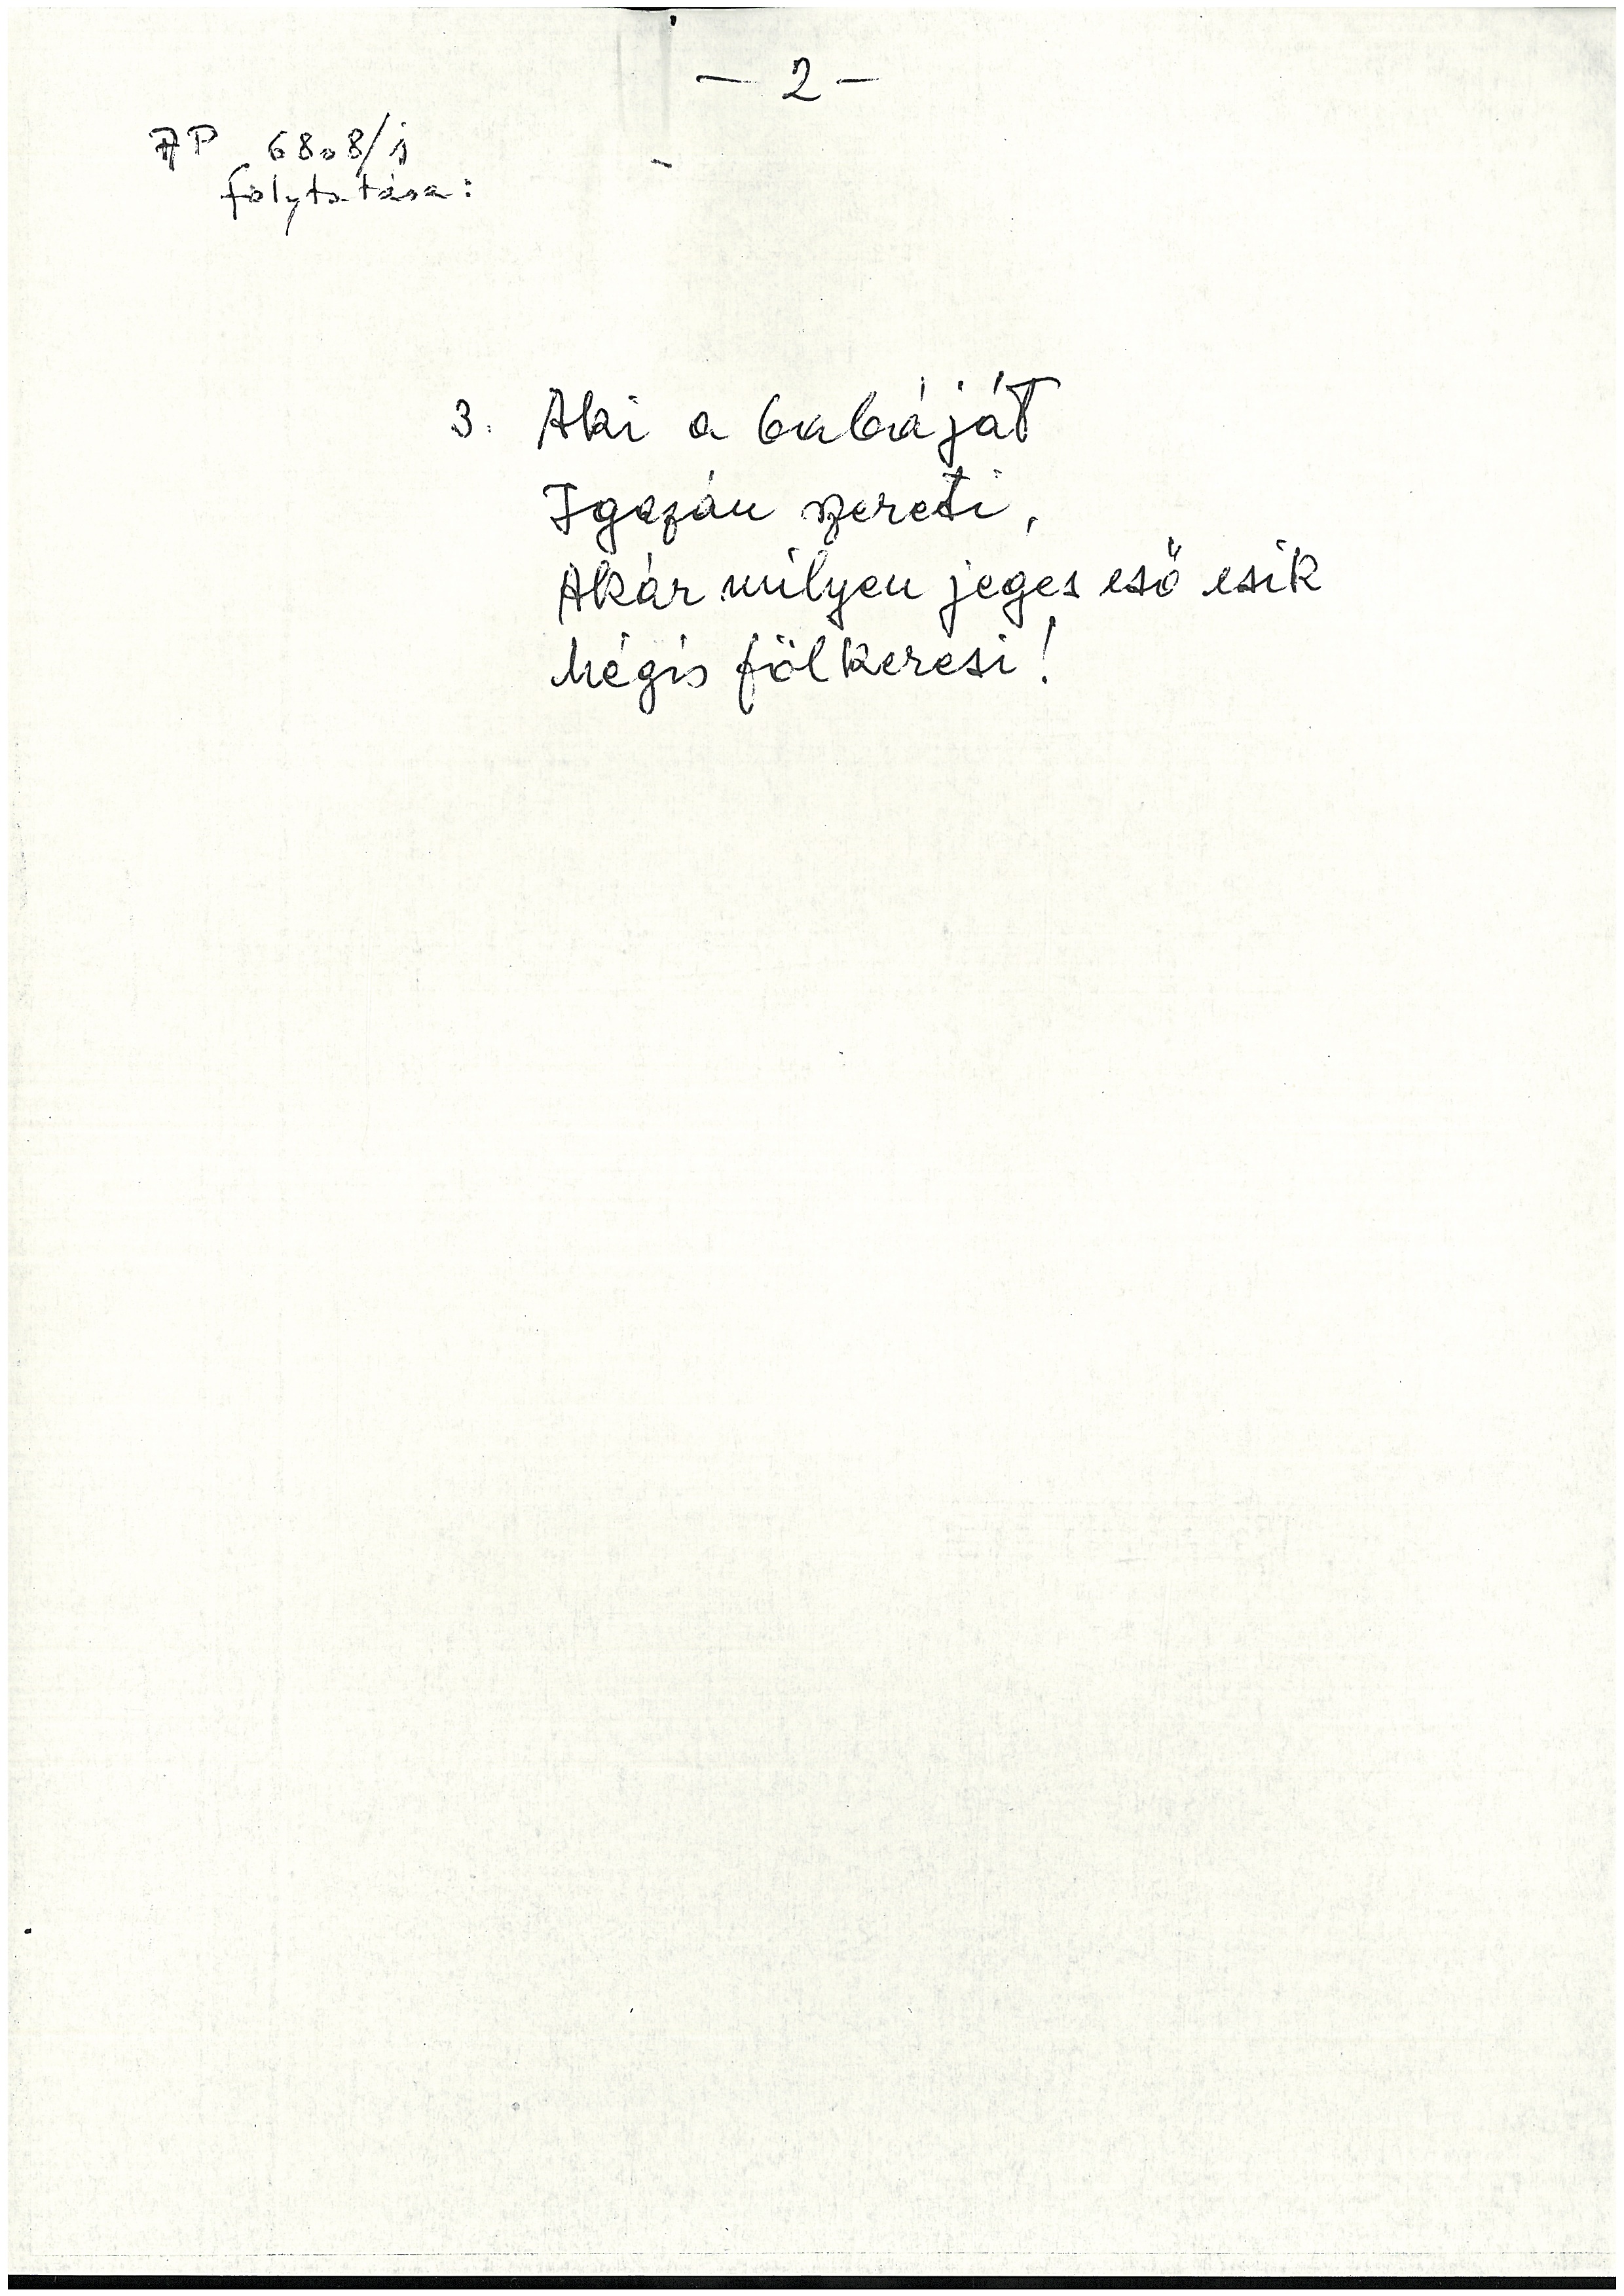 — 2 —
AP 6808/j
folytatása:
3. Aki a babáját
Igazán szereti,
Akár milyen jeges eső esik
Mégis fölkeresi!